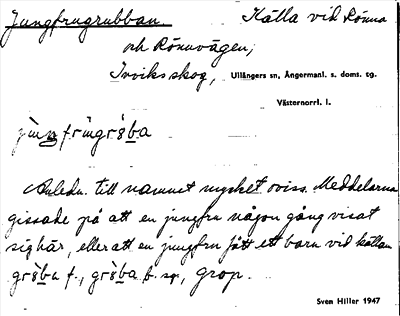 Jungfrugrubban    Källa vid Rönna
och Rönnvägen,
Inviks skog, Ullångers sn, Ångermanl. s. doms. tg.
Västernorrl. l.
Anledn. till namnet mycket oviss. Meddelarna
gissade på att en jungfru någon gång visat
sig här, eller att en jungfru fått ett barn vid källan
f., b. sg., grop.
Sven Hiller 1947